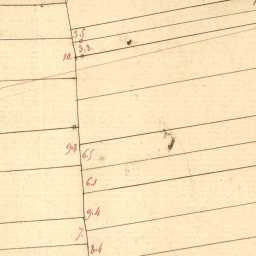 3.5
3.2.
10.
9.2
6.5
6.1
9.4
7.
8.4